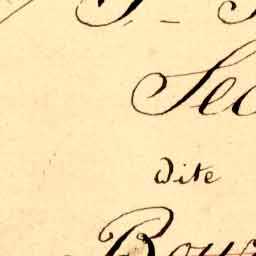 Sec
dite
Bour